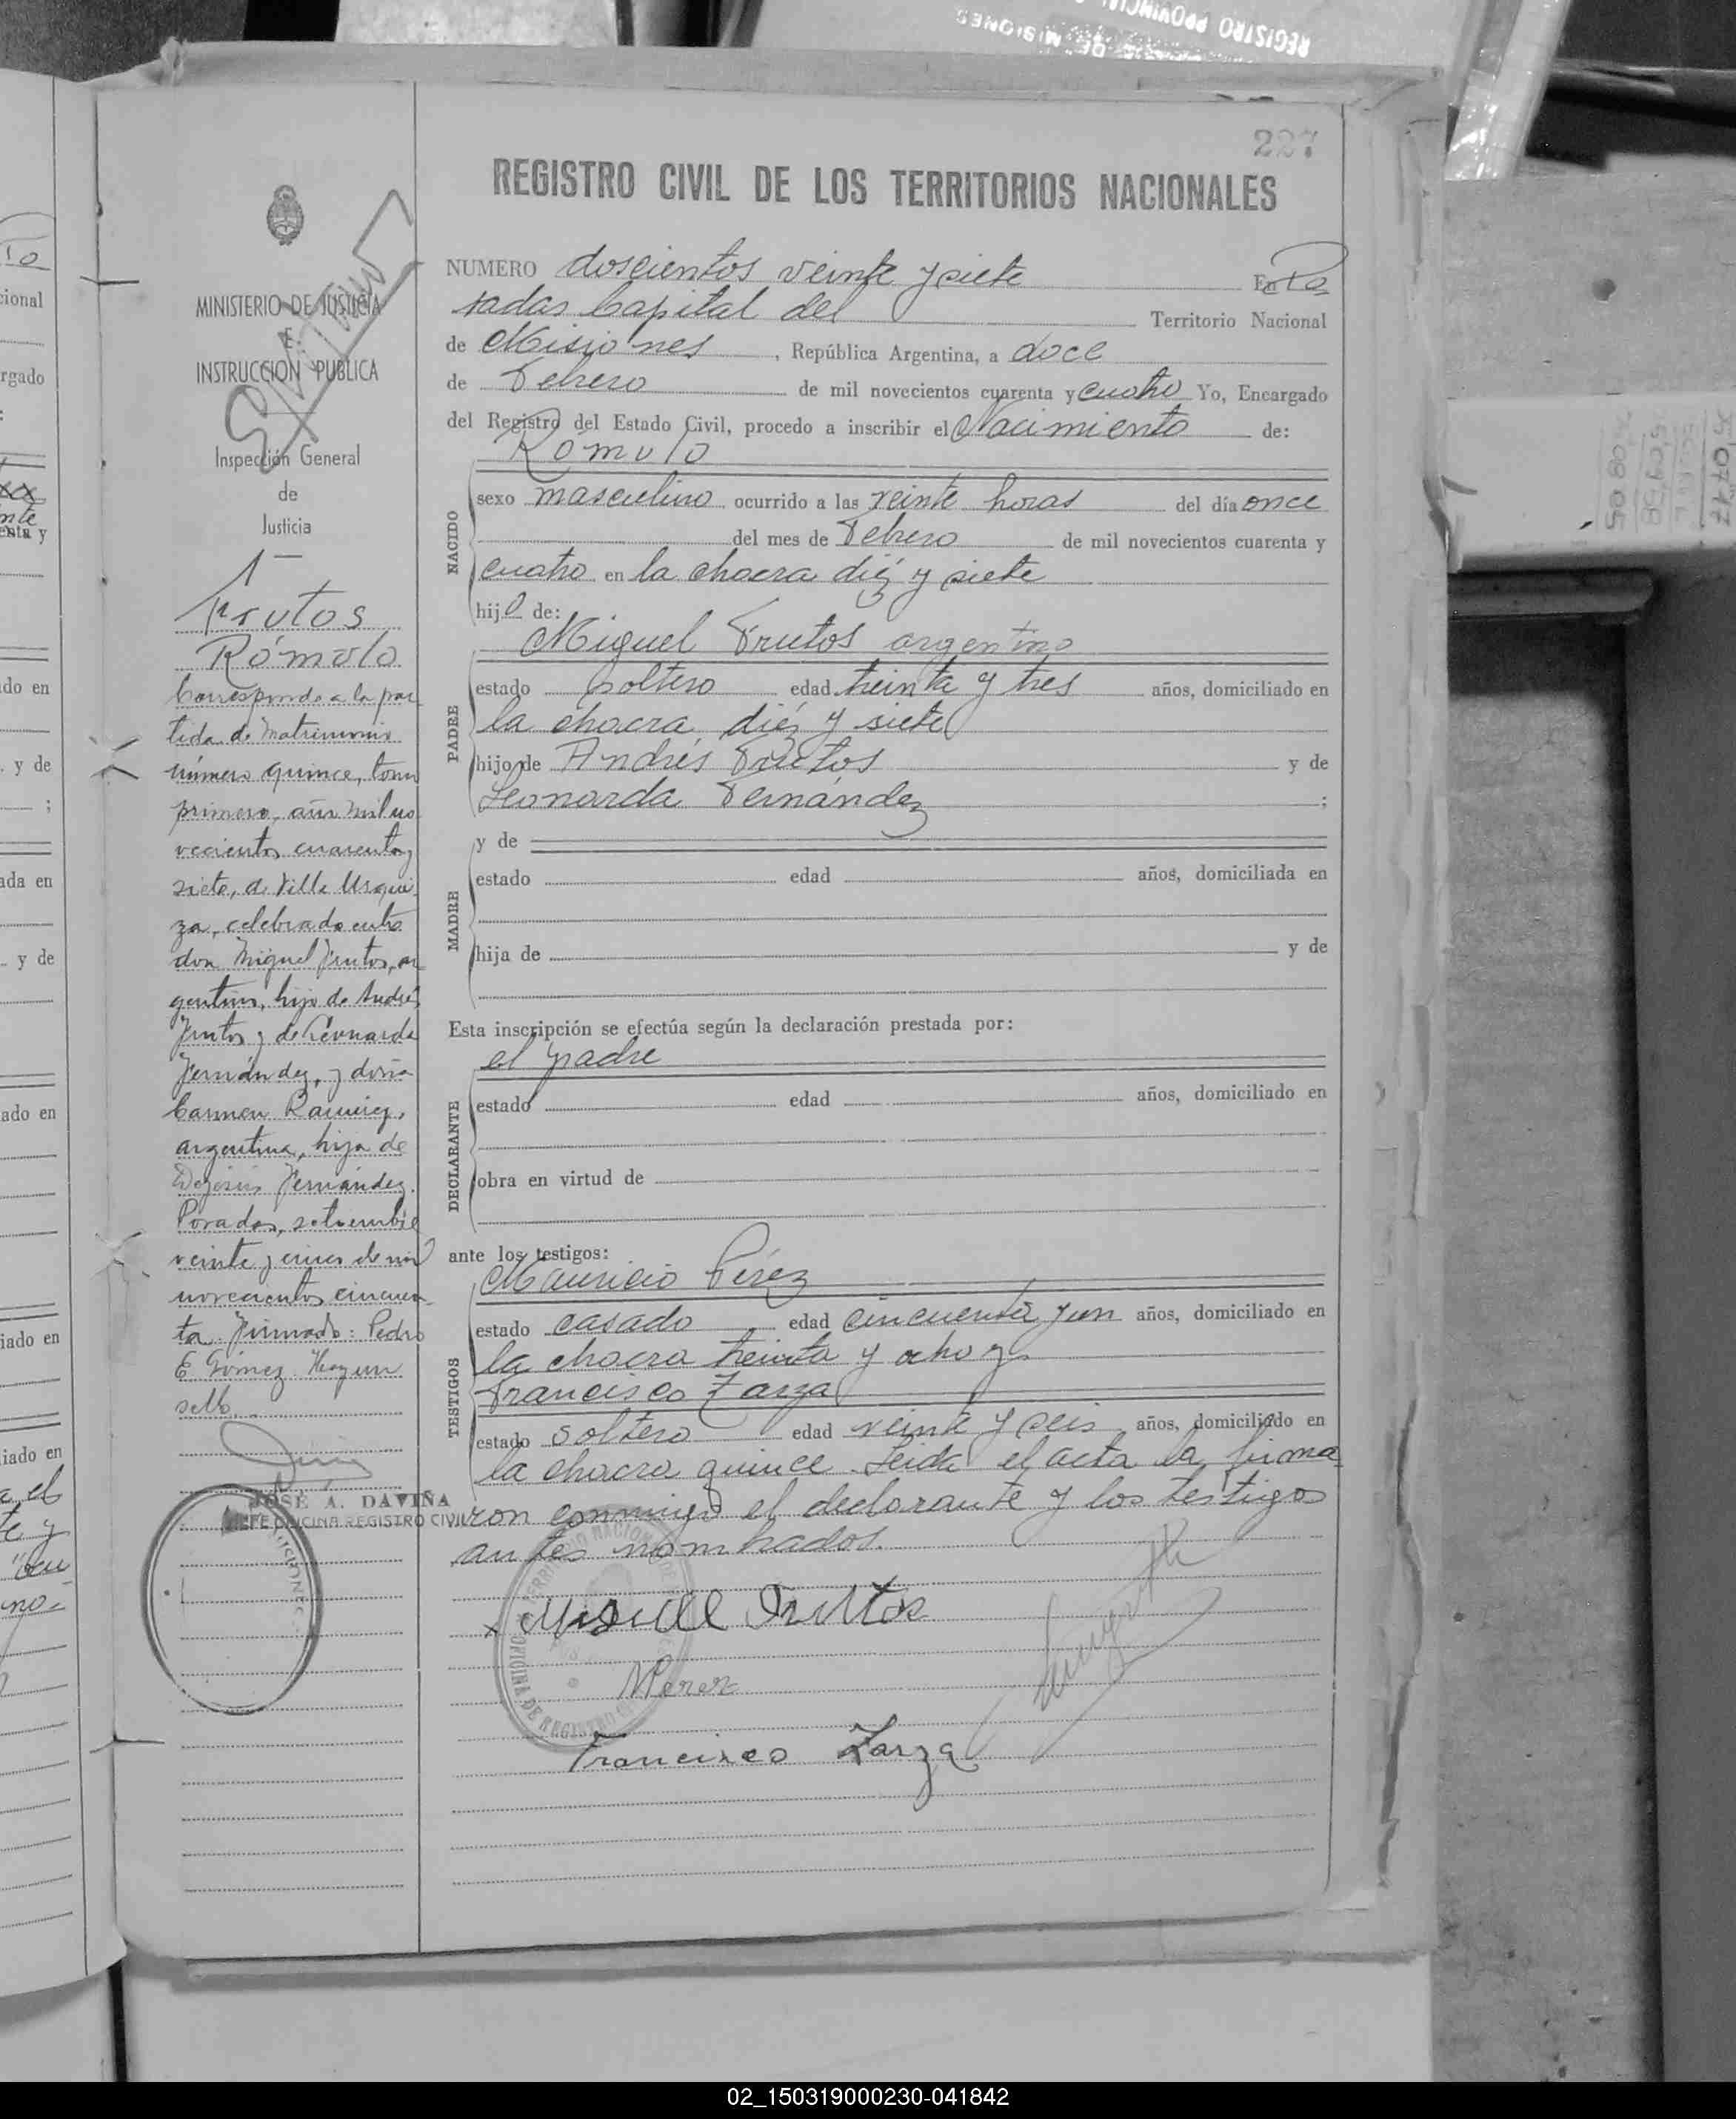 REGISTRO PROVINCIAL
DE MISIONES
227
REGISTRO CIVIL DE LOS TERRITORIOS NACIONALES
MINISTERIO DE JUSTICIA
E
INSTRUCCION PUBLICA
Inspección General
de
Justicia
1
Frutos
Rómulo
Corresponde a la par
tida de Matrimonio
número quince, tomo
primero, año mil no
vecientos cuarenta y
siete, de Villa Urqui
za, celebrado entre
don Miguel Frutos, ar
gentino, hijo de Andrés
Frutos y de Leonarda
Fernández, y doña
Carmen Ramirez,
argentina, hija de
Fernández.
Posadas, setiembre
veinte y cinco de mil
novecientos cincuen
ta. Firmado: Pedro
E. Gómez. Hay un
sello.
JOSÉ A. DAVIÑA
JEFE OFICINA REGISTRO CIVIL
NUMERO doscientos veinte y siete En Po
sadas Capital del Territorio Nacional
de Misiones, República Argentina, a doce
de Febrero de mil novecientos cuarenta y cuatro Yo, Encargado
del Registro del Estado Civil, procedo a inscribir el Nacimiento de:
Rómulo
NACIDO
sexo masculino ocurrido a las veinte horas del día once
del mes de Febrero de mil novecientos cuarenta y
cuatro en la chacra diéz y siete
hijo de:
Miguel Frutos argentino
PADRE
estado soltero edad treinta y tres años, domiciliado en
la chacra diéz y siete
hijo de Andrés Frutos y de
Leonarda Fernández ;
y de
MADRE
estado edad años, domiciliada en
hija de y de
Esta inscripción se efectúa según la declaración prestada por:
el padre
DECLARANTE
estado edad años, domiciliado en
obra en virtud de
ante los testigos:
Mauricio Pérez
TESTIGOS
estado casado edad cincuenta y un años, domiciliado en
la chacra treinta y ocho y
Francisco Zarza
estado soltero edad veinte y seis años, domiciliado en
la chacra quince. Leida el acta la firma
ron conmigo el declarante y los testigos
antes nombrados.
Miguel Fruttos
MPerez
Francisco Zarza
02_150319000230-041842